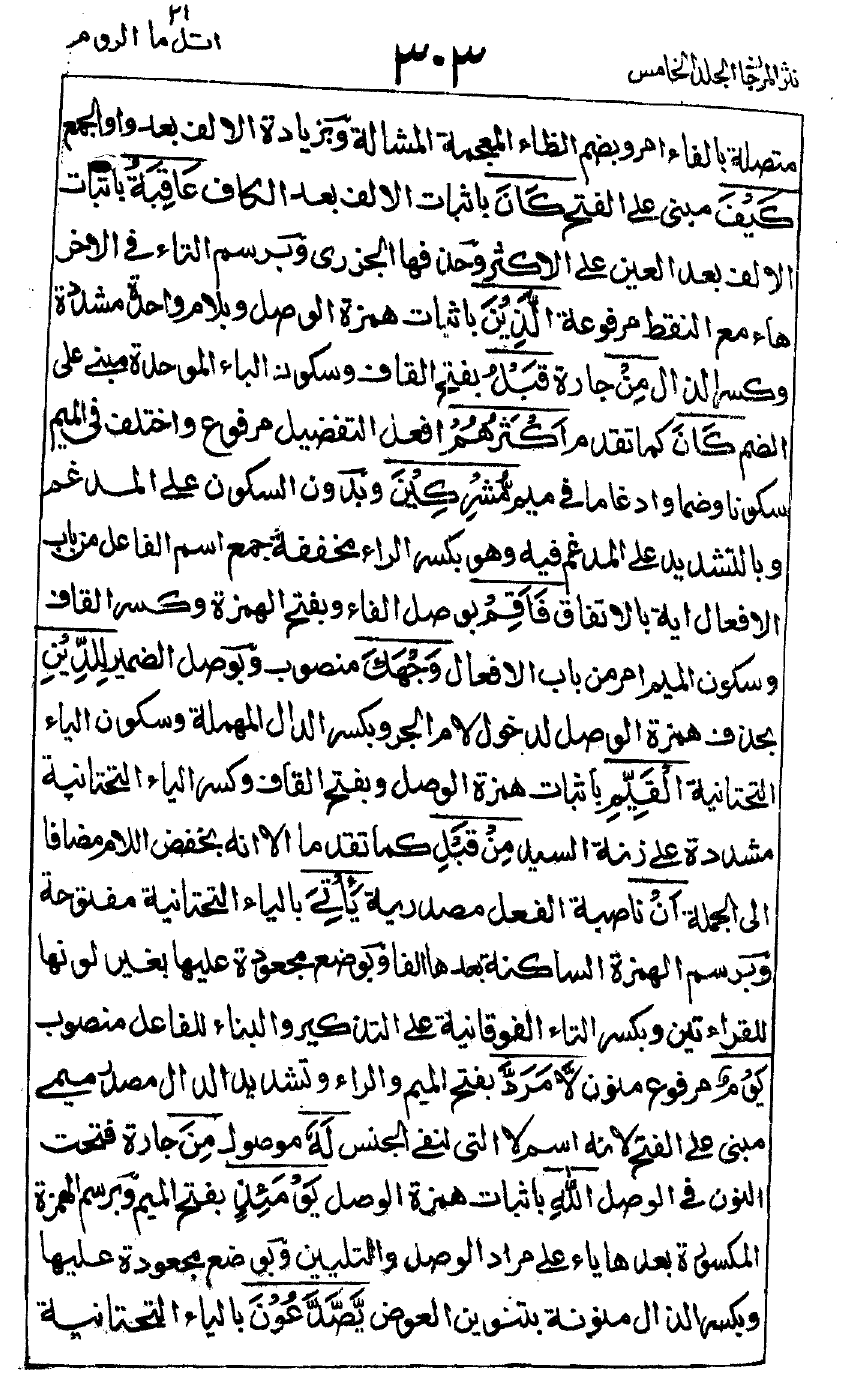 نثر المرجان الجلد الخامس
٣٠٣
٢١
اتل ما الروم
متصلة بالفاء امر وبضم الظاء المعجمة المشالة وبزيادة الالف بعد واو الجمع
كَيْفَ مبنى على الفتح كَانَ باثبات الالف بعد الكاف عَاقِبَةُ باثبات
الالف بعد العين على الاكثر وحذفها الجزرى وبرسم التاء فى الاخر
هاء مع النقط مرفوعة الَّذِيْنَ باثبات همزة الوصل وبلام واحدة مشددة
وكسر الذال مِنْ جارة قَبْلُ بفتح القاف وسكون الباء الموحدة مبنى على
الضم كَانَ كما تقدم اَكْثَرُهُمْ افعل التفضيل مرفوع واختلف فى الميم
سكونا وضما وادغاما فى ميم مُّشْرِكِيْنَ وبدون السكون على المدغم
وبالتشديد على المدغم فيه وهو بكسر الراء مخففة جمع اسم الفاعل من باب
الافعال اية بالاتفاق فَاَقِمْ بوصل الفاء وبفتح الهمزة وكسر القاف
وسكون الميم امر من باب الافعال وَجْهَكَ منصوب وبوصل الضمير لِلدِّيْنِ
بحذف همزة الوصل لدخول لام الجر وبكسر الدال المهملة وسكون الياء
التحتانية الْقَيِّمِ باثبات همزة الوصل وبفتح القاف وكسر الياء التحتانية
مشددة على زنة السيد مِنْ قَبْلِ كما تقدما الا انه بخفض اللام مضافا
الى الجملة اَنْ ناصبة الفعل مصدرية يَّاْتِىَ بالياء التحتانية مفتوحة
وبرسم الهمزة الساكنة بعدها الفا وبوضع مجعودة عليها بغير لونها
للقراءتين وبكسر التاء الفوقانية على التذكير والبناء للفاعل منصوب
يَوْمٌ مرفوع منون لَّا مَرَدَّ بفتح الميم والراء وتشديد الدال مصدر ميمى
مبنى على الفتح لانه اسم لا التى لنفى الجنس لَهٗ موصول مِنَ جارة فتحت
النون فى الوصل اللّٰهِ باثبات همزة الوصل يَوْمَئِذٍ بفتح الميم وبرسم الهمزة
المكسورة بعدها ياء على مراد الوصل والتليين وبوضع مجعودة عليها
وبكسر الذال منونة بتنوين العوض يَّصَّدَّعُوْنَ بالياء التحتانية